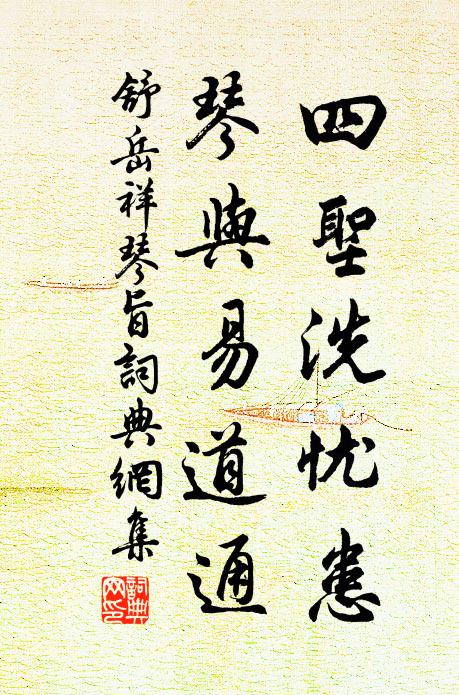 四聖洗忧患
琴與易道通
舒岳祥琴旨詞典網集
詞典网印